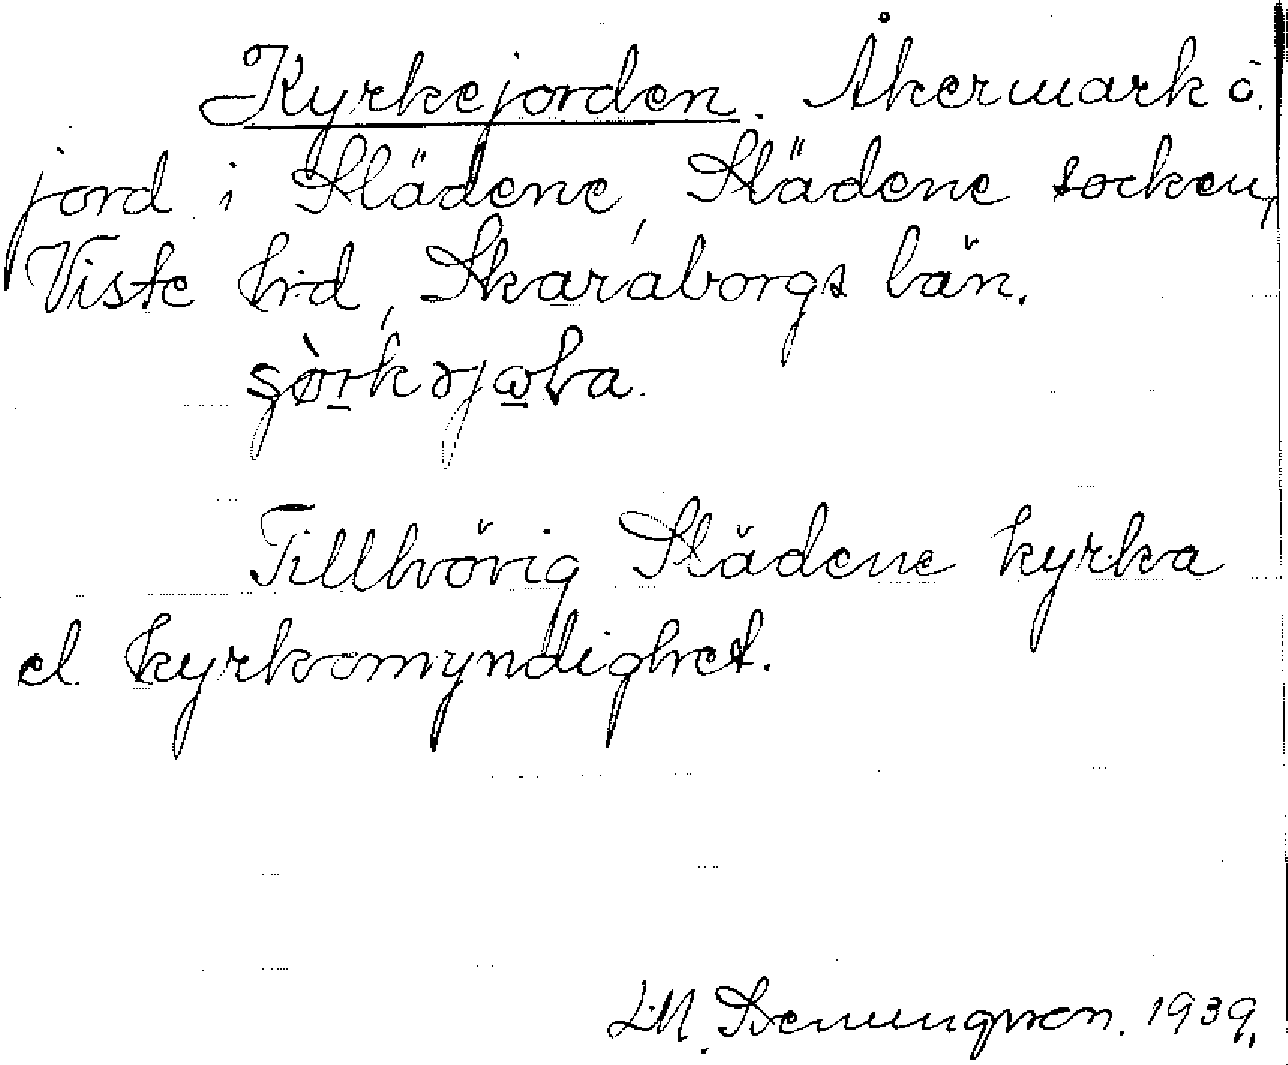 Kyrkejorden. Åkermark o.
jord i Slädene, Slädene socken,
Viste hrd, Skaraborgs län.
Tillhörig Slädene kyrka
el. kyrkomyndighet.
L.M. 1939.